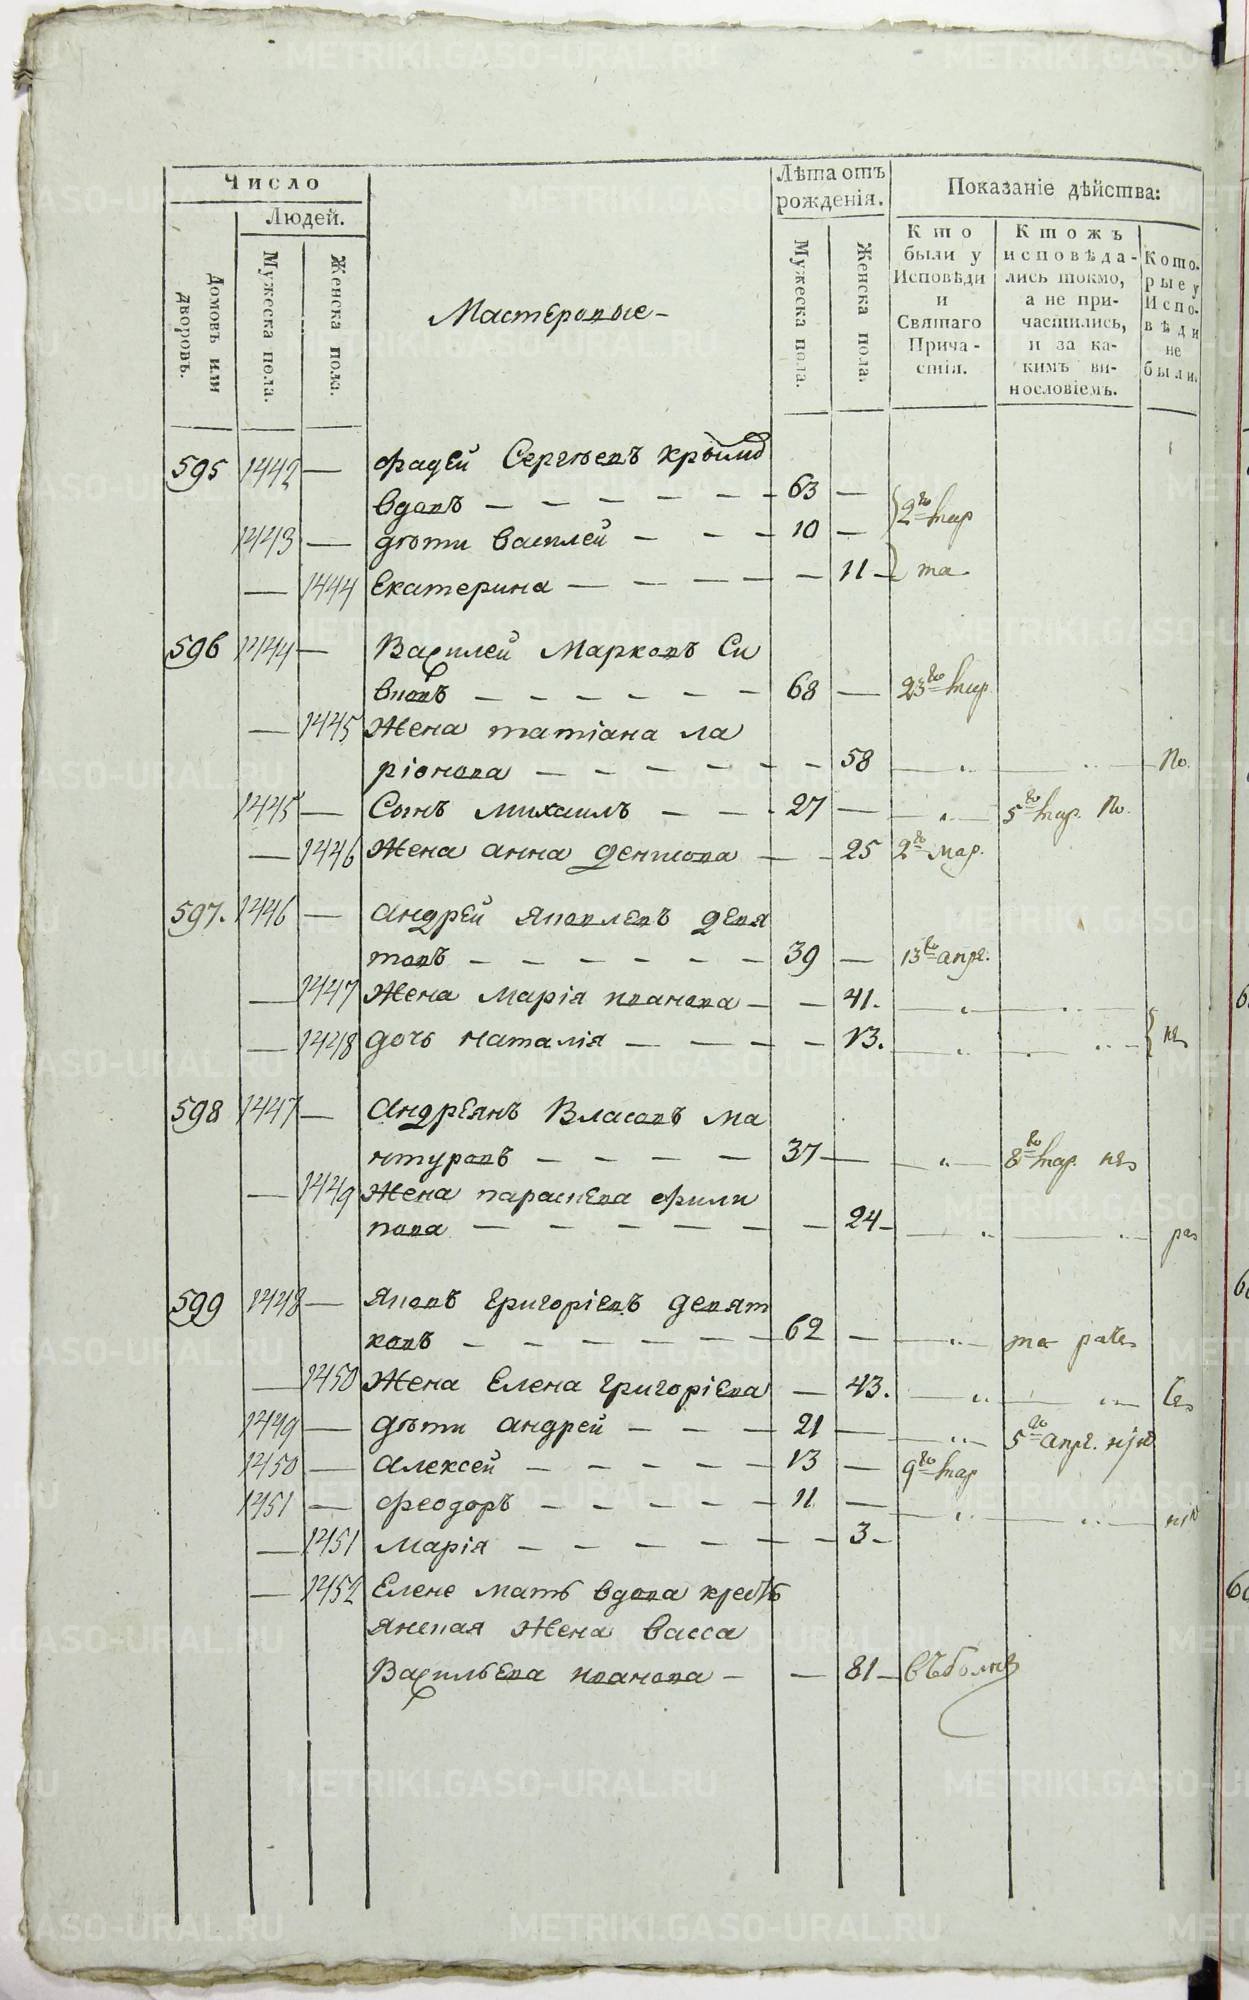 Число
Лѣта отъ рожденія.
Показаніе дѣйства:
Домовъ или дворовъ.
Людей.
Мужеска пола.
Женска пола.
Мастеровые
Мужеска пола.
Женска пола.
Кто были у Исповѣди и Святаго Причастія.
Ктожъ исповѣдались токмо, а не причастились, и за какимъ винословіемъ.
Которые у Исповѣди не были.
595 1442 — фадѣй Сергѣевъ
вдовъ — 63 — 2го мар
1443 — дѣти Василей — 10 —
— 1444 Екатерина — 11 — та
596 1444 — Василей Марковъ Си
— 68 — 23го мар
— 1445 Жена татіана ла
ріонова — 58 По.
1445 — Сынъ Михаилъ — 27 — 5го мар. По.
— 1446 Жена анна денисова — 25 2го мар.
597. 1446 — Андрей Яковлевъ девя
товъ — 39 — 13го апре.
— 1447 Жена Марія иванова — 41.
— 1448 дочь наталія — 13.
598 1447 — Андреянъ Власовъ ма
нтуровъ — 37 — 8го мар.
— 1449 Жена параскева фили
пова — 24
599 1448 — Яковъ григоріевъ девят
ковъ — 62 — та
— 1450 Жена Елена григоріева — 43.
1449 — дѣти андрей — 21 — 5го апре.
1450 — Алексей — 13 — 9го мар
1451 — феодоръ — 11 —
— 1451 Марія — 3
— 1452 Елене мать вдова кресть
янская Жена васса
Васильева иванова — 81
METRIKI.GASO-URAL.RU